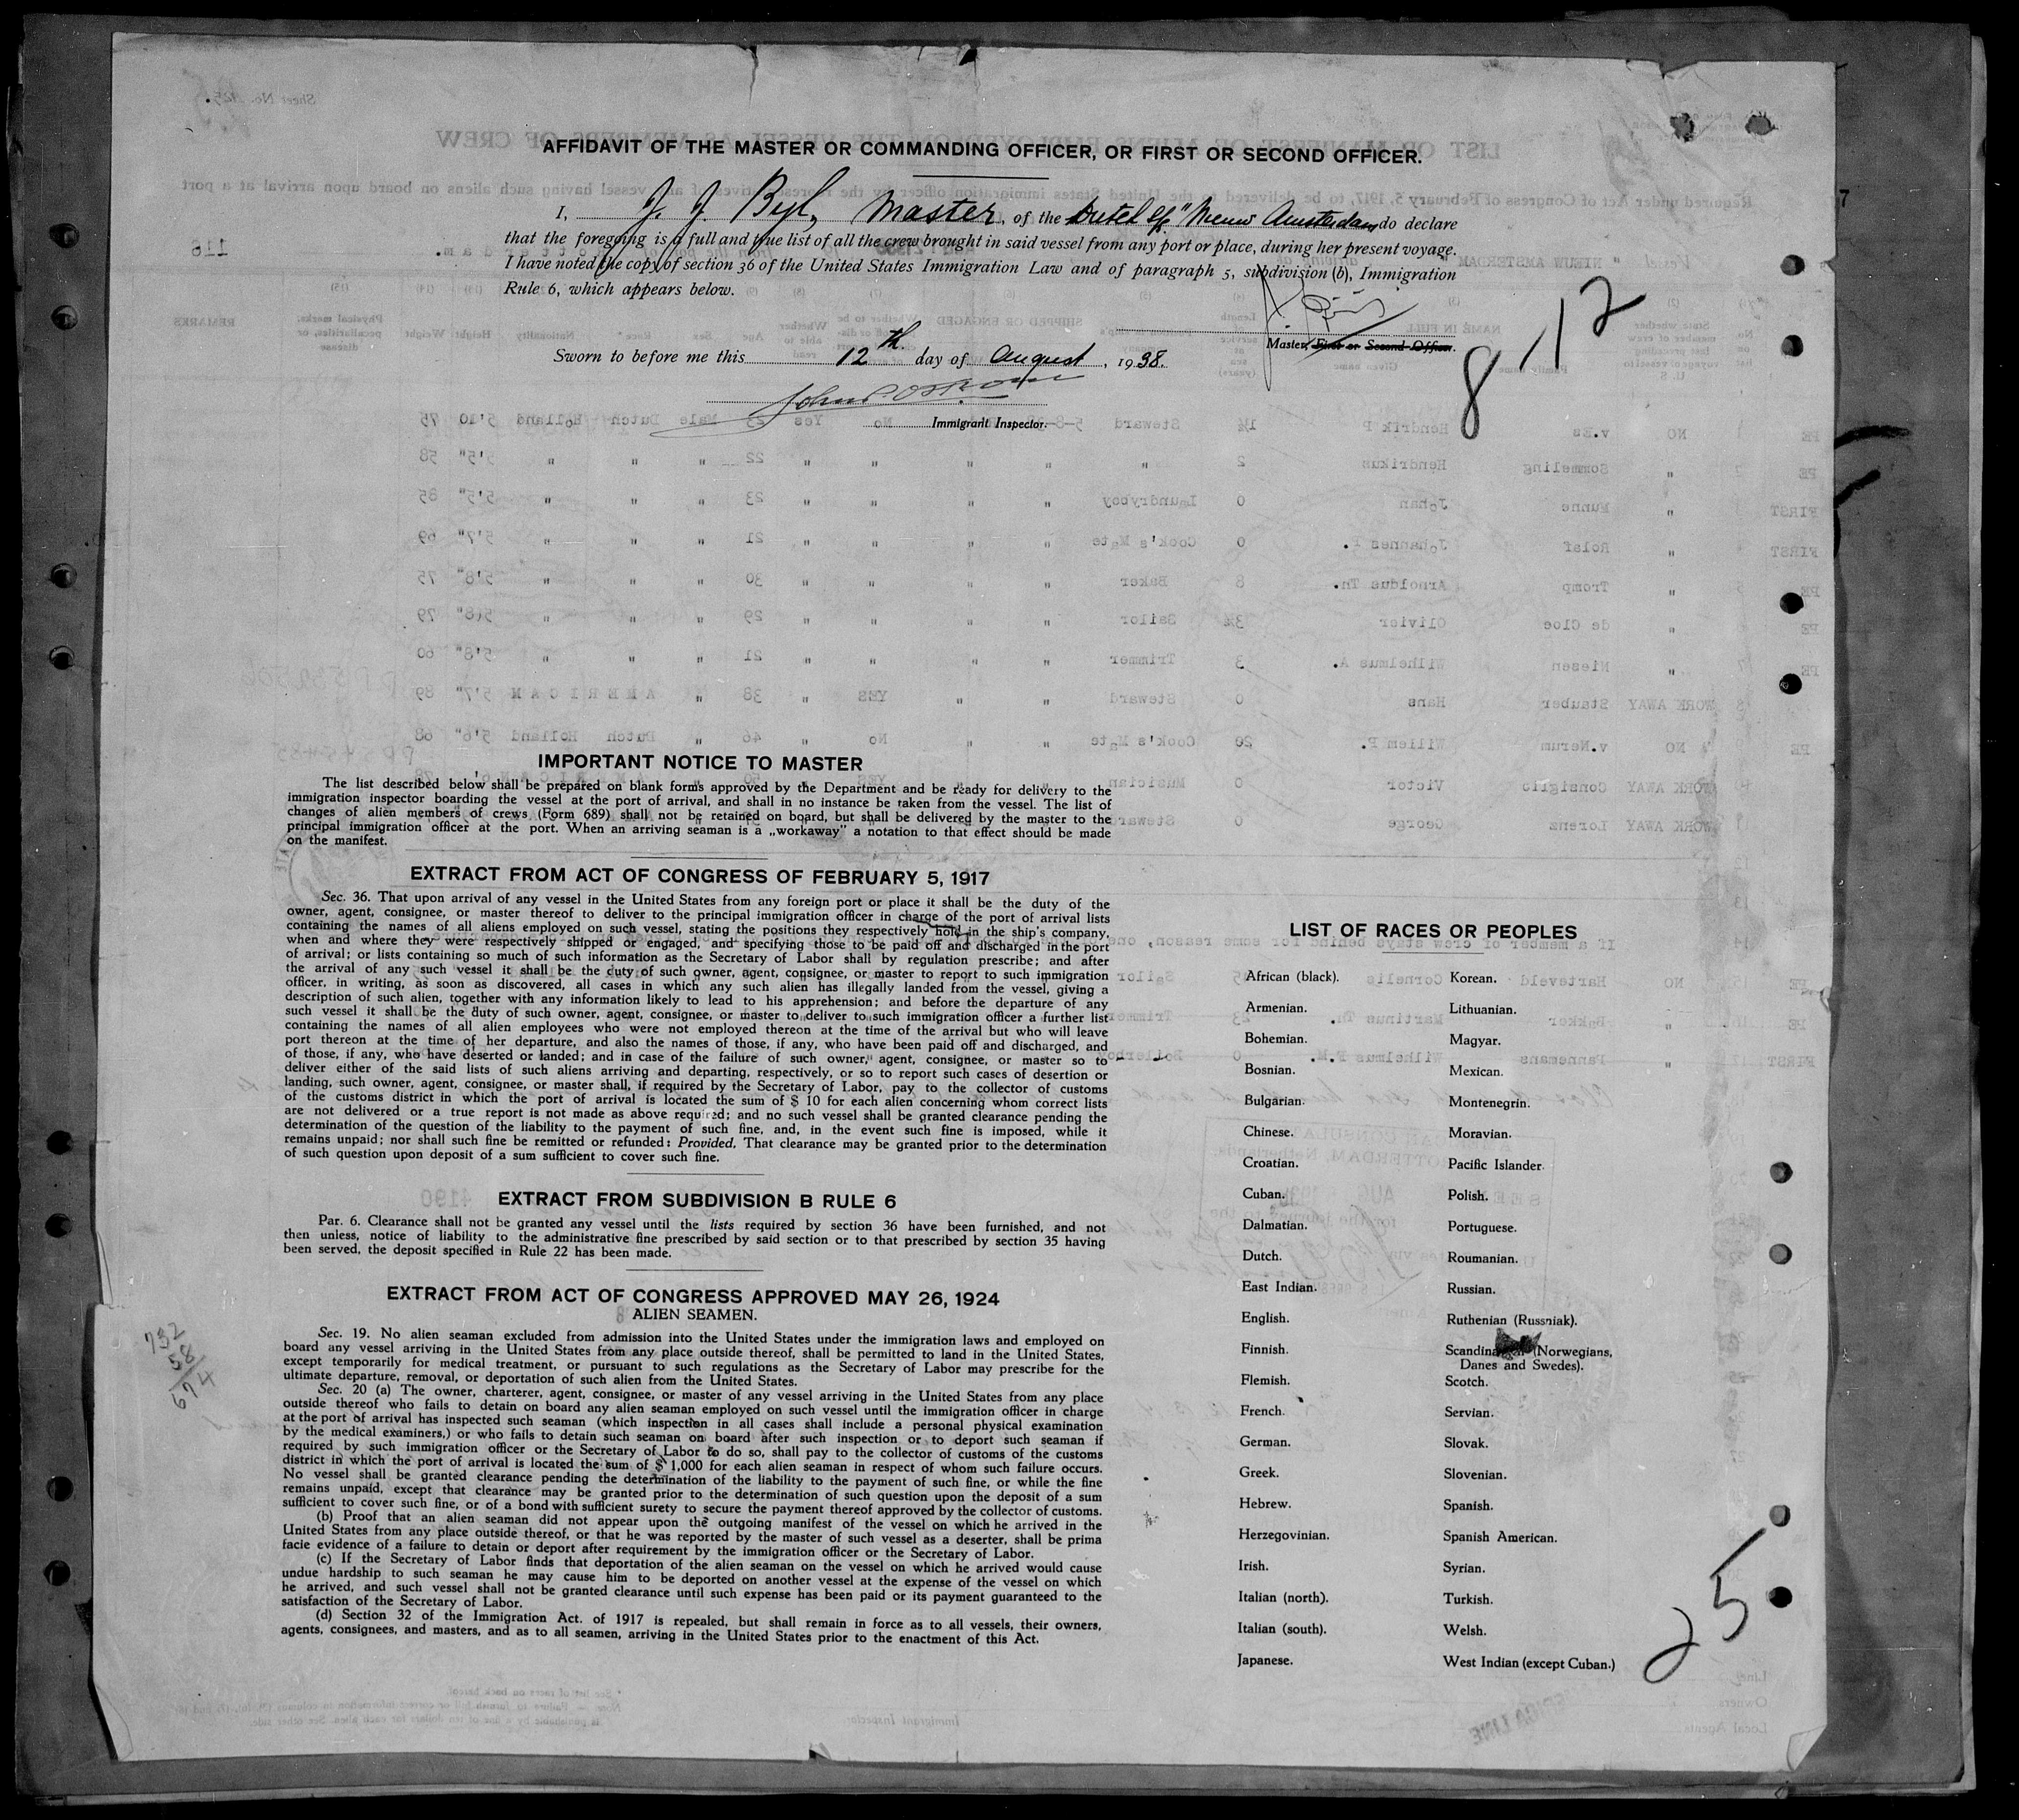 AFFIDAVIT OF THE MASTER OR COMMANDING OFFICER, OR FIRST OR SECOND OFFICER.
I, J. J. Byl, Master, of the "Nieuw Amsterdam do declare
that the foregoing is a full and true list of all the crew brought in said vessel from any port or place, during her present voyage.
I have noted the copy of section 36 of the United States Immigration Law and of paragraph 5, subdivision (b), Immigration
Rule 6, which appears below.
Master, First or Second Officer.
8/12
Sworn to before me this 12th day of August, 1938.
Immigrant Inspector.
IMPORTANT NOTICE TO MASTER
The list described below shall be prepared on blank forms approved by the Department and be ready for delivery to the
immigration inspector boarding the vessel at the port of arrival, and shall in no instance be taken from the vessel. The list of
changes of alien members of crews (Form 689) shall not be retained on board, but shall be delivered by the master to the
principal immigration officer at the port. When an arriving seaman is a „workaway" a notation to that effect should be made
on the manifest.
EXTRACT FROM ACT OF CONGRESS OF FEBRUARY 5, 1917
Sec. 36. That upon arrival of any vessel in the United States from any foreign port or place it shall be the duty of the
owner, agent, consignee, or master thereof to deliver to the principal immigration officer in charge of the port of arrival lists
containing the names of all aliens employed on such vessel, stating the positions they respectively hold in the ship's company,
when and where they were respectively shipped or engaged, and specifying those to be paid off and discharged in the port
of arrival; or lists containing so much of such information as the Secretary of Labor shall by regulation prescribe; and after
the arrival of any such vessel it shall be the duty of such owner, agent, consignee, or master to report to such immigration
officer, in writing, as soon as discovered, all cases in which any such alien has illegally landed from the vessel, giving a
description of such alien, together with any information likely to lead to his apprehension; and before the departure of any
such vessel it shall be the duty of such owner, agent, consignee, or master to deliver to such immigration officer a further list
containing the names of all alien employees who were not employed thereon at the time of the arrival but who will leave
port thereon at the time of her departure, and also the names of those, if any, who have been paid off and discharged, and
of those, if any, who have deserted or landed; and in case of the failure of such owner, agent, consignee, or master so to
deliver either of the said lists of such aliens arriving and departing, respectively, or so to report such cases of desertion or
landing, such owner, agent, consignee, or master shall, if required by the Secretary of Labor, pay to the collector of customs
of the customs district in which the port of arrival is located the sum of $ 10 for each alien concerning whom correct lists
are not delivered or a true report is not made as above required; and no such vessel shall be granted clearance pending the
determination of the question of the liability to the payment of such fine, and, in the event such fine is imposed, while it
remains unpaid; nor shall such fine be remitted or refunded: Provided, That clearance may be granted prior to the determination
of such question upon deposit of a sum sufficient to cover such fine.
EXTRACT FROM SUBDIVISION B RULE 6
Par. 6. Clearance shall not be granted any vessel until the lists required by section 36 have been furnished, and not
then unless, notice of liability to the administrative fine prescribed by said section or to that prescribed by section 35 having
been served, the deposit specified in Rule 22 has been made.
EXTRACT FROM ACT OF CONGRESS APPROVED MAY 26, 1924
ALIEN SEAMEN.
Sec. 19. No alien seaman excluded from admission into the United States under the immigration laws and employed on
board any vessel arriving in the United States from any place outside thereof, shall be permitted to land in the United States,
except temporarily for medical treatment, or pursuant to such regulations as the Secretary of Labor may prescribe for the
ultimate departure, removal, or deportation of such alien from the United States.
Sec. 20 (a) The owner, charterer, agent, consignee, or master of any vessel arriving in the United States from any place
outside thereof who fails to detain on board any alien seaman employed on such vessel until the immigration officer in charge
at the port of arrival has inspected such seaman (which inspection in all cases shall include a personal physical examination
by the medical examiners,) or who fails to detain such seaman on board after such inspection or to deport such seaman if
required by such immigration officer or the Secretary of Labor to do so, shall pay to the collector of customs of the customs
district in which the port of arrival is located the sum of $ 1,000 for each alien seaman in respect of whom such failure occurs.
No vessel shall be granted clearance pending the determination of the liability to the payment of such fine, or while the fine
remains unpaid, except that clearance may be granted prior to the determination of such question upon the deposit of a sum
sufficient to cover such fine, or of a bond with sufficient surety to secure the payment thereof approved by the collector of customs.
(b) Proof that an alien seaman did not appear upon the outgoing manifest of the vessel on which he arrived in the
United States from any place outside thereof, or that he was reported by the master of such vessel as a deserter, shall be prima
facie evidence of a failure to detain or deport after requirement by the immigration officer or the Secretary of Labor.
(c) If the Secretary of Labor finds that deportation of the alien seaman on the vessel on which he arrived would cause
undue hardship to such seaman he may cause him to be deported on another vessel at the expense of the vessel on which
he arrived, and such vessel shall not be granted clearance until such expense has been paid or its payment guaranteed to the
satisfaction of the Secretary of Labor.
(d) Section 32 of the Immigration Act. of 1917 is repealed, but shall remain in force as to all vessels, their owners,
agents, consignees, and masters, and as to all seamen, arriving in the United States prior to the enactment of this Act.
732
58
674
LIST OF RACES OR PEOPLES
African (black).
Armenian.
Bohemian.
Bosnian.
Bulgarian.
Chinese.
Croatian.
Cuban.
Dalmatian.
Dutch.
East Indian.
English.
Finnish.
Flemish.
French.
German.
Greek.
Hebrew.
Herzegovinian.
Irish.
Italian (north).
Italian (south).
Japanese.
Korean.
Lithuanian.
Magyar.
Mexican.
Montenegrin.
Moravian.
Pacific Islander.
Polish.
Portuguese.
Roumanian.
Russian.
Ruthenian (Russniak).
Scandinavian (Norwegians,
Danes and Swedes).
Scotch.
Servian.
Slovak.
Slovenian.
Spanish.
Spanish American.
Syrian.
Turkish.
Welsh.
West Indian (except Cuban.)
25